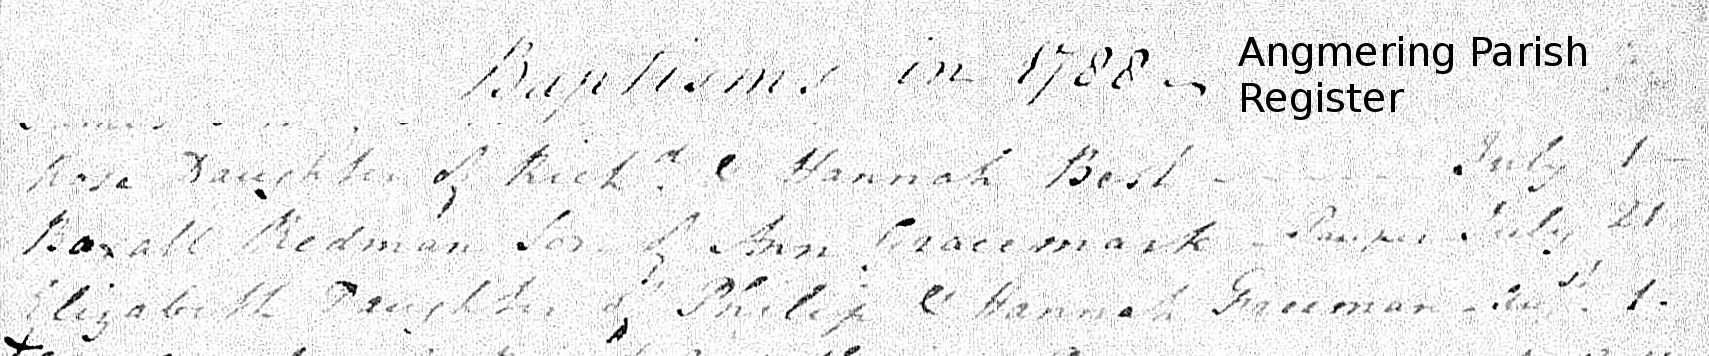 Baptisms in 1788
Angmering Parish
Register
Rose Daughter of Richd. & Hannah Best July 1
Boxall Redman Son of Ann Gracemark Pauper July 21
Elizabeth Daughter of Philip & Hannah Freeman Augst. 1